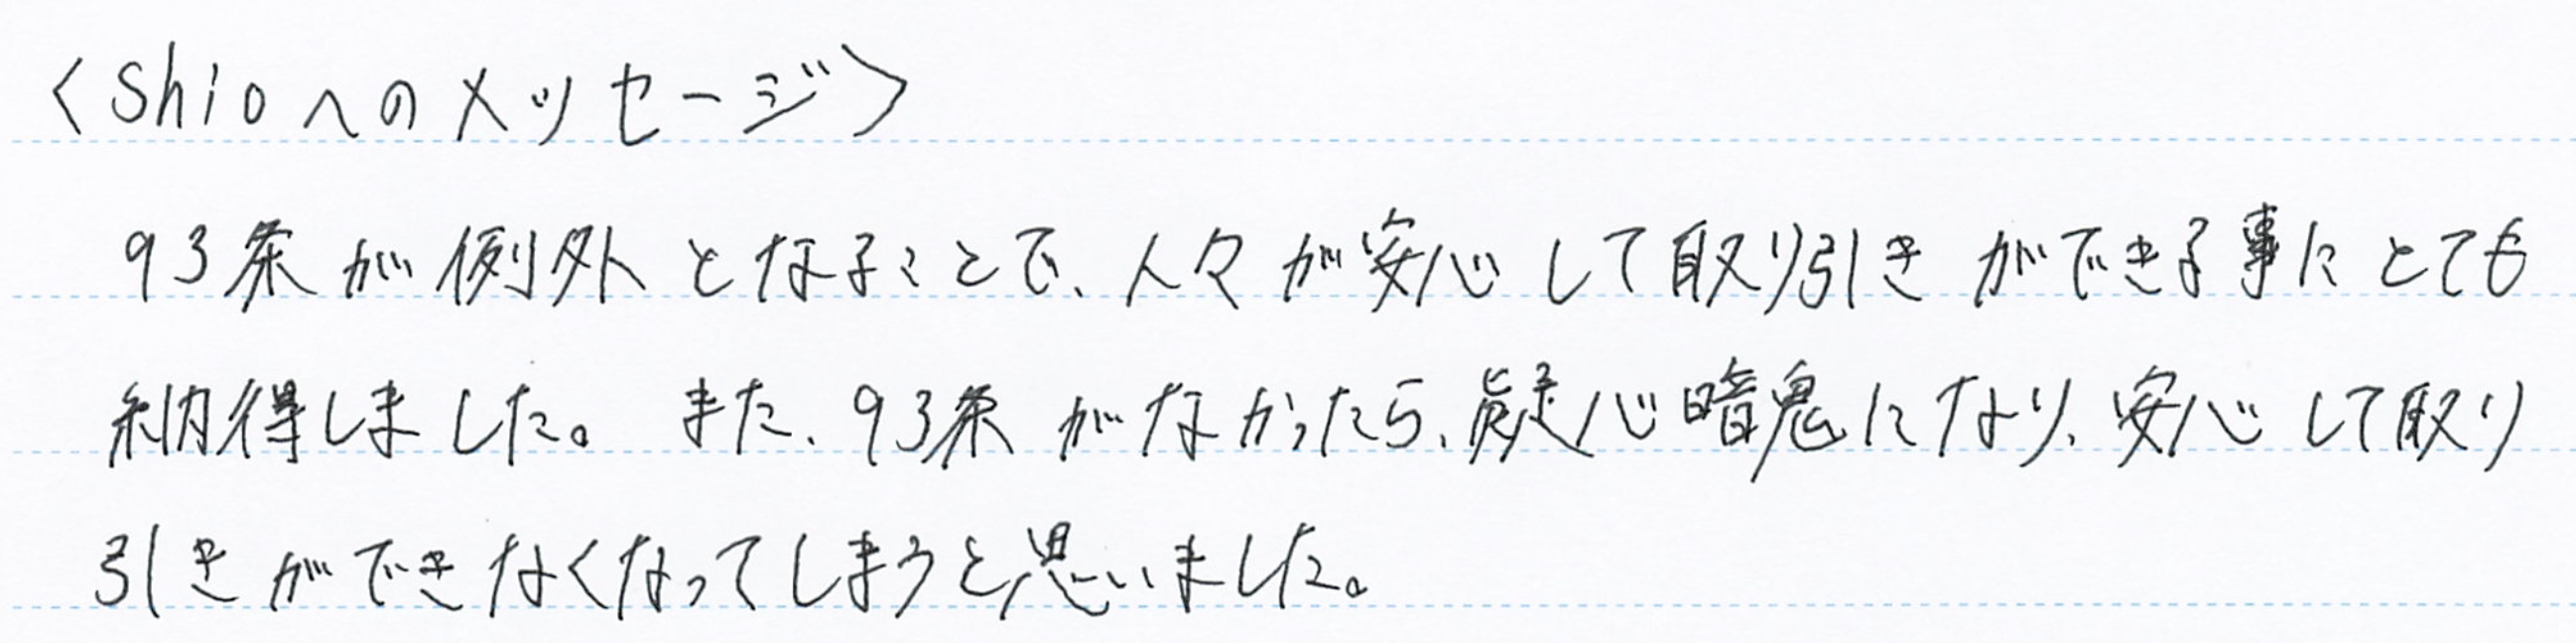 ＜Shioへのメッセージ＞
93条が例外となることで、人々が安心して取り引きができる事にとても
納得しました。また、93条がなかったら、疑心暗鬼になり、安心して取り
引きができなくなってしまうと思いました。